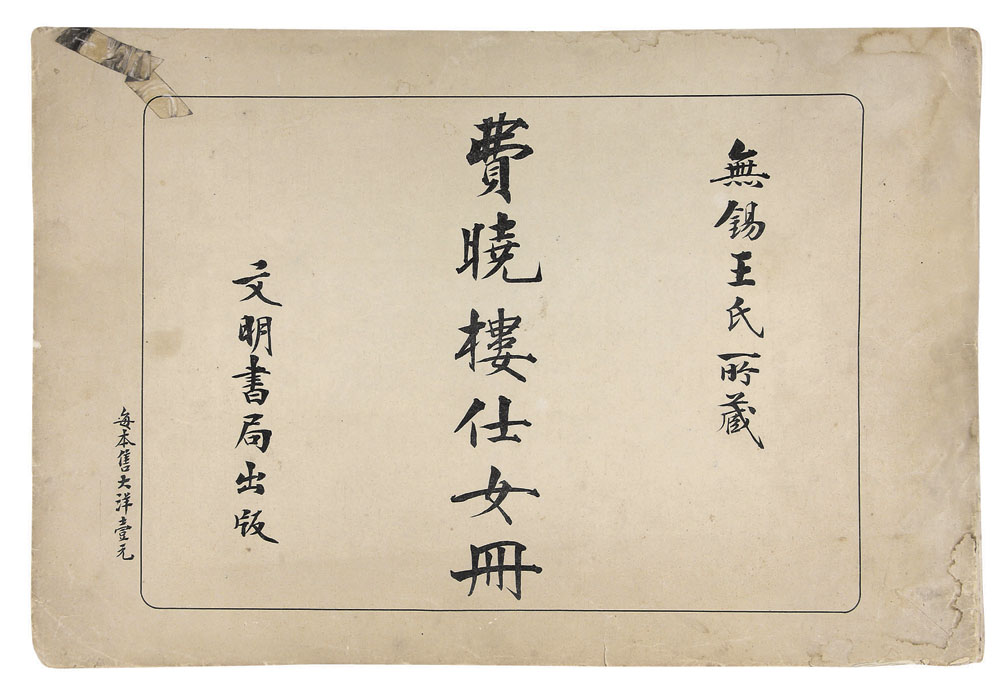 無錫王氏所藏
費曉樓仕女冊
文明書局出版
每本售大洋壹元